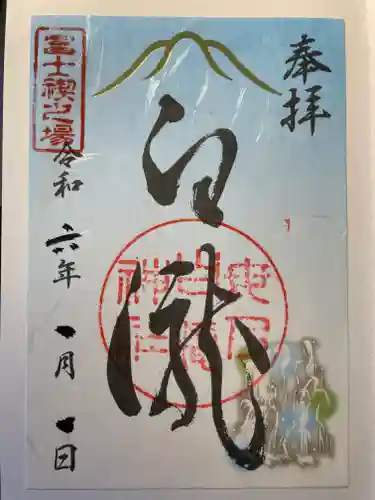 奉拝
白瀧
白瀧
神社
富士禊之場
令和六年一月一日